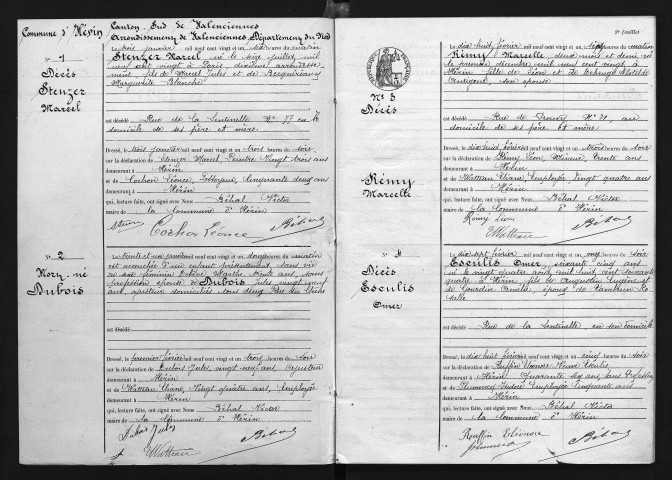 Commune d'Hérin
Canton Sud de Valenciennes
Arrondissement de Valenciennes, Département du Nord
N° 1
Décès
Stenzer
Marcel
Le trois janvier mil neuf cent vingt et un heures du matin
Stenzer Marcel né le seize juillet mil
neuf cent vingt à Paris dixième arrondisse
ment fils de Marcel Jules et de
Marguerite Blanche
est décédé Rue de la Sentinelle N° 77 en le
domicile de ses père et mère.
Dressé, le trois janvier mil neuf cent vingt et un trois heures du soir
sur la déclaration de Stenzer Marcel, Peintre Vingt trois ans
demeurant à Hérin
et de Cochon Léonce, cinquante deux ans
demeurant à Hérin
qui, lecture faite, ont signé avec Nous Béhal Victor
maire de la Commune d'Hérin
Cochon Léonce
Béhal
N° 2
Mort-né
Dubois
Le trente et un janvier mil neuf cent vingt et un douze heures du matin
est accouchée d'un enfant présentement sans vie
du sexe féminin trente ans, sans
profession épouse de Dubois Jules vingt neuf
ans, ajusteur domiciliés tous deux Rue du
est décédé
Dressé, le premier février mil neuf cent vingt et un trois heures du soir
sur la déclaration de Dubois Jules, vingt neuf ans, ajusteur
demeurant à Hérin
et de Watteau Vingt quatre ans, Employée
demeurant à Hérin
qui, lecture faite, ont signé avec Nous Béhal Victor
maire de la Commune d'Hérin
Dubois Jules
Béhal
Watteau
feuillet
N° 3
Décès
Rémy
Marcelle
Le dix huit février mil neuf cent vingt et un heures du matin
Rémy Marcelle deux mois et demi née
le premier décembre mil neuf cent vingt à
Hérin fille de Léon et de Clotilde
son épouse
est décédé Rue de N° 21 au
domicile de ses père et mère
Dressé, le dix huit février mil neuf cent vingt et un trois heures du soir
sur la déclaration de Rémy Léon, Mineur, trente ans
demeurant à Hérin
et de Watteau Employée, Vingt quatre ans
demeurant à Hérin
qui, lecture faite, ont signé avec Nous Béhal Victor
maire de la Commune d'Hérin
Rémy Léon
Béhal
Watteau
N° 4
Décès
Esculis
Omer
Le dix sept février mil neuf cent vingt et un onze heures du soir
Esculis Omer, soixante cinq ans
né le vingt quatre août mil huit cent soixante
quatre à Hérin fils de Augustin Eugène et
de Gourdin épouse de
est décédé Rue de la Sentinelle en son domicile
Dressé, le dix huit février mil neuf cent vingt et un cinq heures du soir
sur la déclaration de Rouffin Eléonore Veuve Esculis
demeurant à Hérin
et de employé cinquante ans
demeurant à Hérin
qui, lecture faite, ont signé avec Nous Béhal Victor
maire de la Commune d'Hérin
Rouffin Eléonore
Béhal